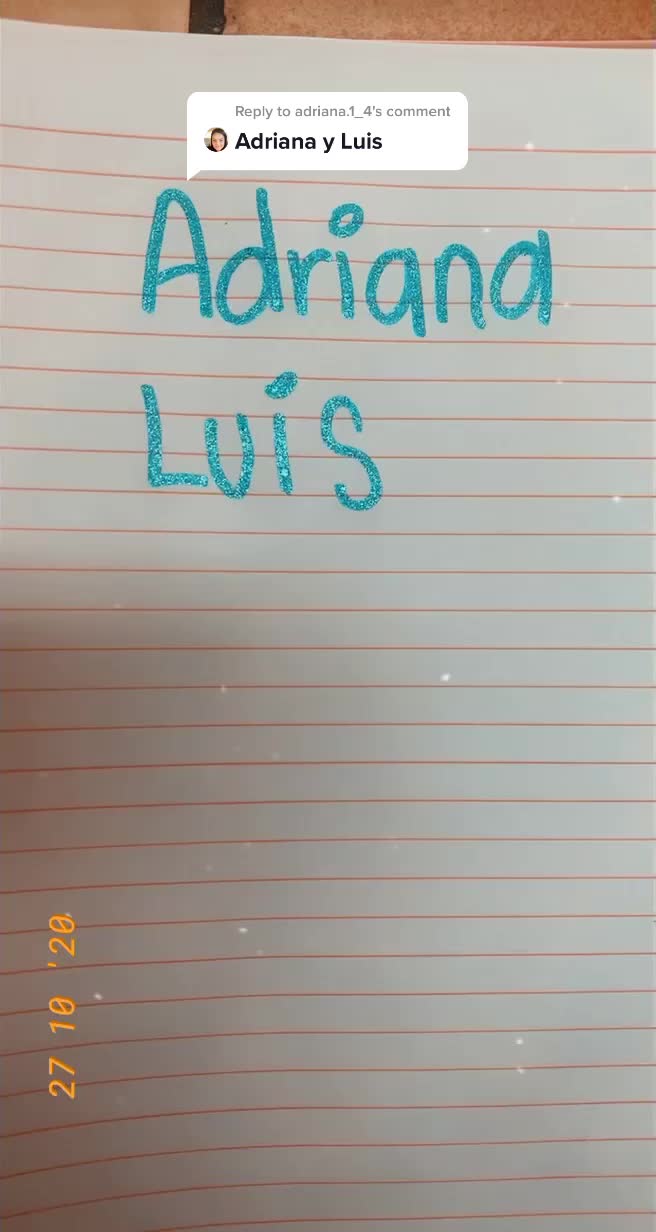 Reply to adriana.1_4's comment
Adriana y Luis
Adriana
Luis
27 10 '20